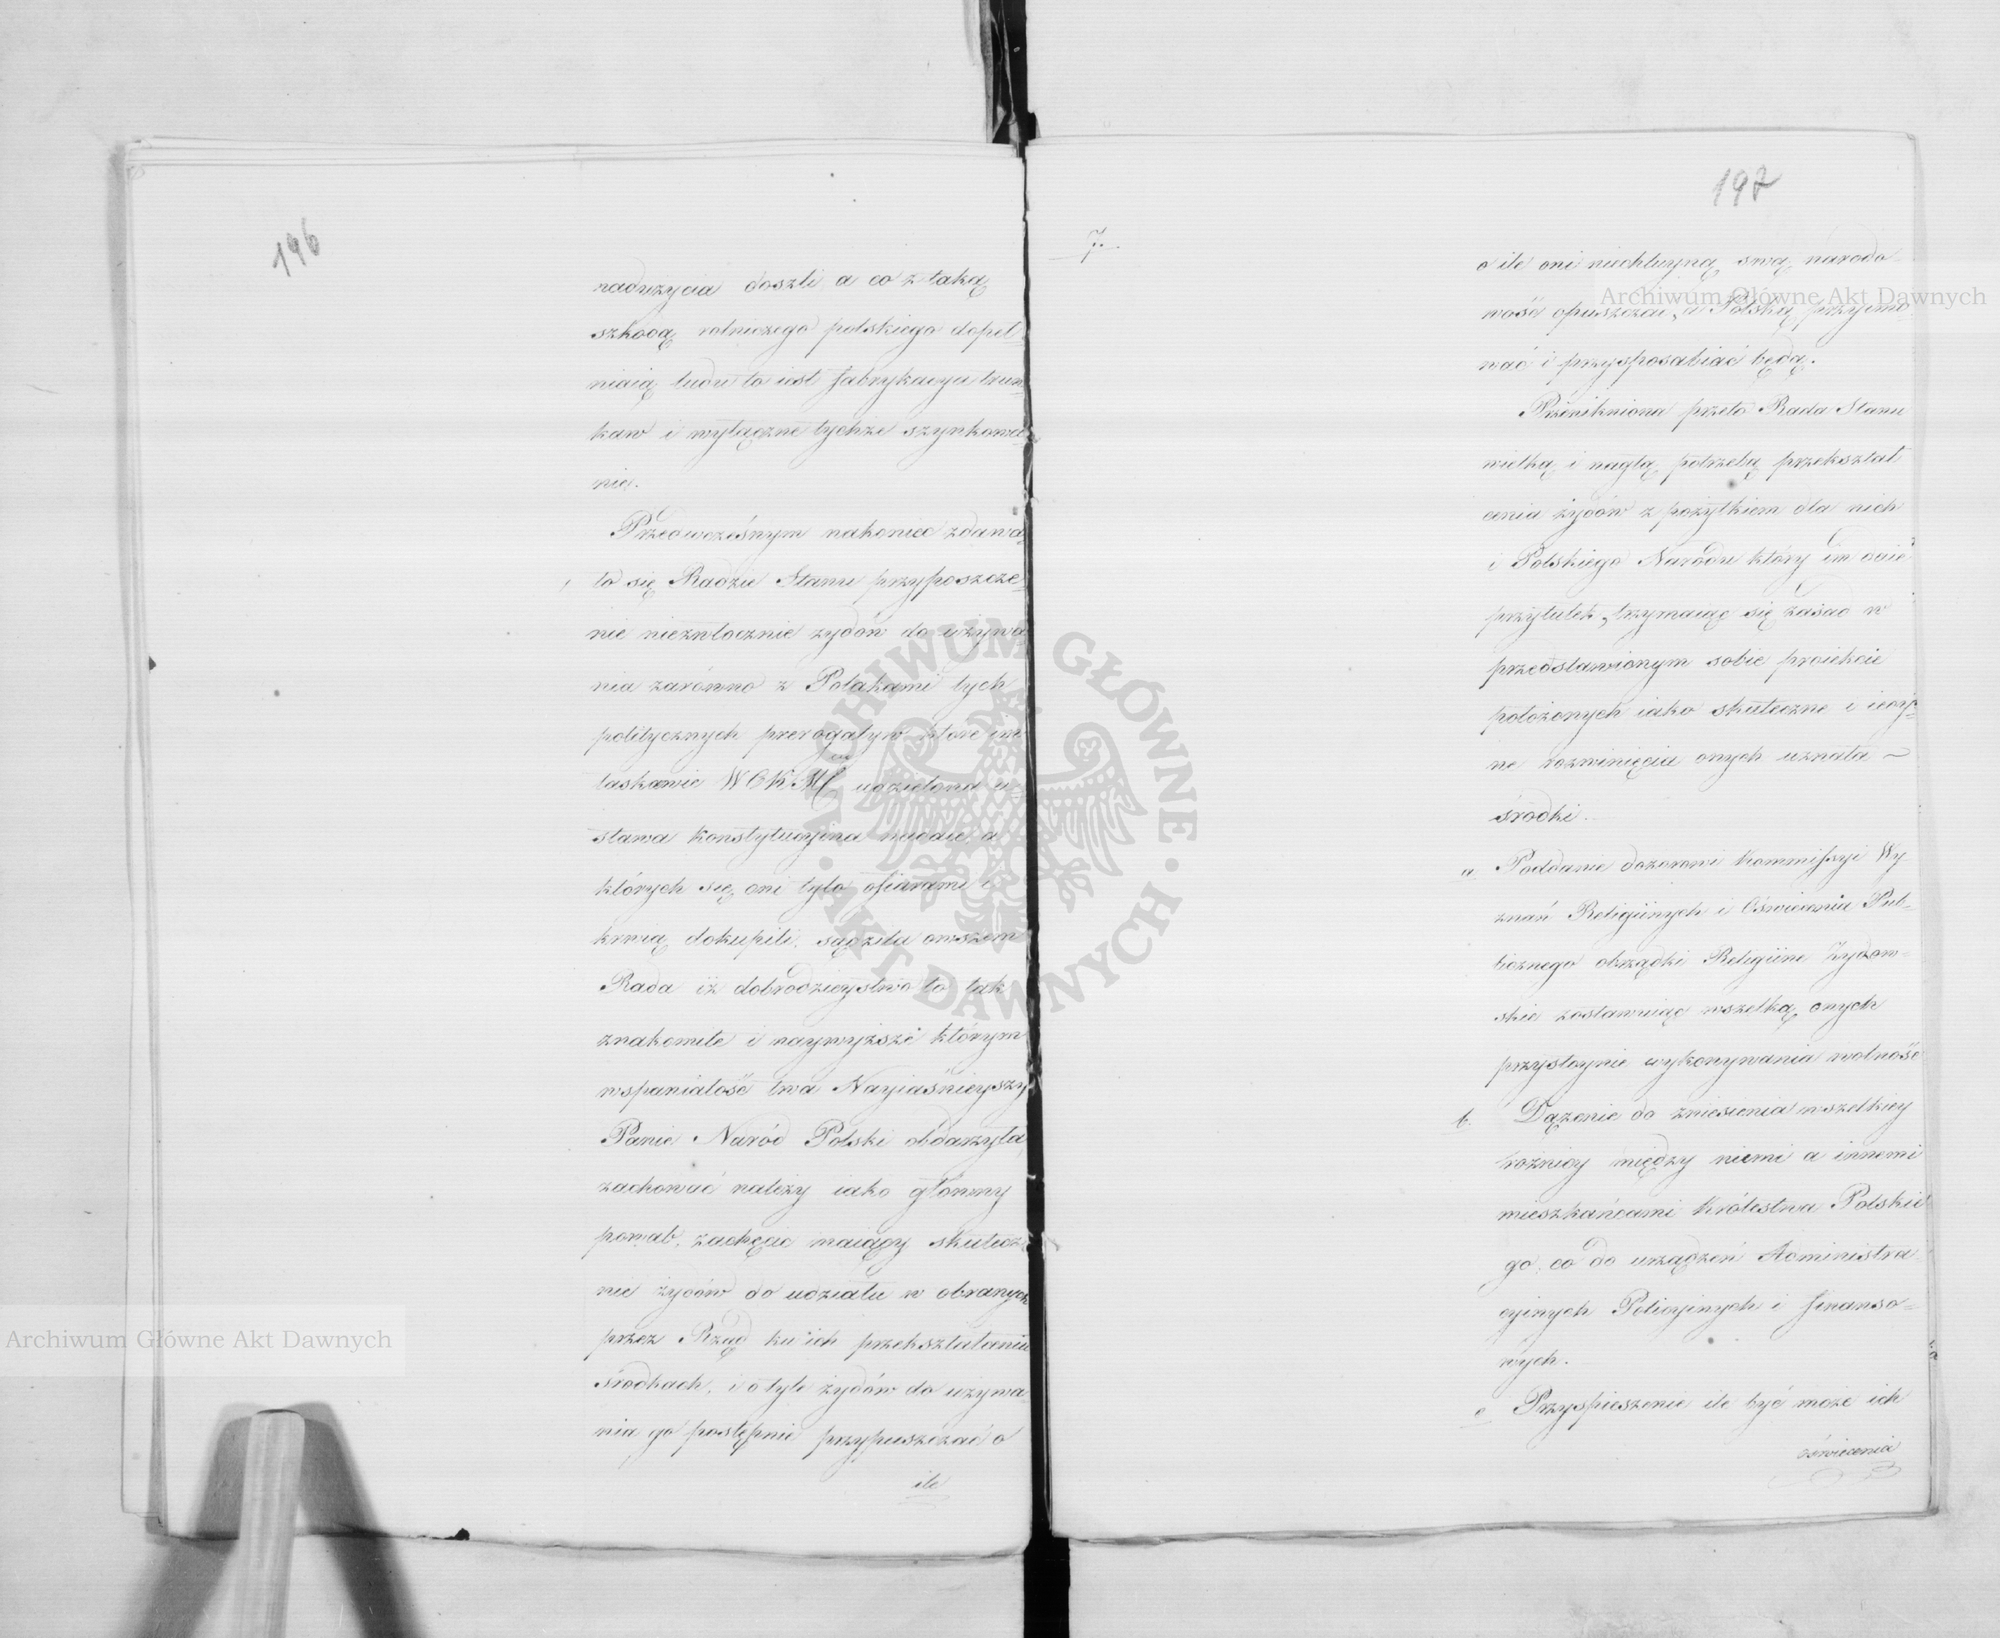 196
nadużycia doszli a co z taką
szkodą rolniczego polskiego dopeł-
niaią ludu to iest fabrykacyu trun-
ków i wyłączne tychże szynkowa-
nie.
Przedwcześnym nakoniec zdawa-
ło się Radzie Stanu przyposzcze-
nie niezwłocznie żydów do używa-
nia zarówno z Polakami tych
politycznych prerogatyw które im
łaskawie WCKMć udzielona u-
stawa konstytucyjna nadaie, a
których się oni tylo ofiarami i
krwią dokupili, sądziła owszem
Rada iż dobrodzieystwo to tak
znakomite i naywyższe którym
wspaniałość twa Nayiaśnieyszy
Panie Naród Polski obdarzyła,
zachować należy iako główny
powab, zachęcić maiący skutecz-
nie żydów do udziału w obranych
przez Rząd ku ich przekształceniu
środkach, i o tyle żydów do używa-
nia go postępnie przypuszczać o
ile
197
7.
o ile oni niechlwyną swą narodo-
wość opuszczać, a Polską przyimo-
wać i przysposabiać będą.
Przenikniona przeto Rada Stanu
wielką i nagłą potrzebą przekształ
cenia żydów z pożytkiem dla nich
i Polskiego Narodu który im daie
przytułek, trzymaiąc się zasad w
przedstawionym sobie proiekcie
położonych iako skuteczne i iedy-
ne rozwinięcia onych uznała
środki.
a. Poddanie dozorowi Kommissyi Wy-
znań Religiinych i Oświecenia Pub-
licznego obrządki Religiine Żydow-
skie zostawuiąc wszelką onych
przystoynie wykonywania wolność
b. Dążenie do zniesienia wszelkiey
różnicy między niemi a innemi
mieszkańcami Królestwa Polskie
go, co do urządzeń Administra-
cyinych Policyinych i finanso-
wych.
c Przyspieszenie ile być może ich
oświecenia
Archiwum Główne Akt Dawnych
Archiwum Główne Akt Dawnych
ARCHIWUM GŁÓWNE · AKT DAWNYCH ·